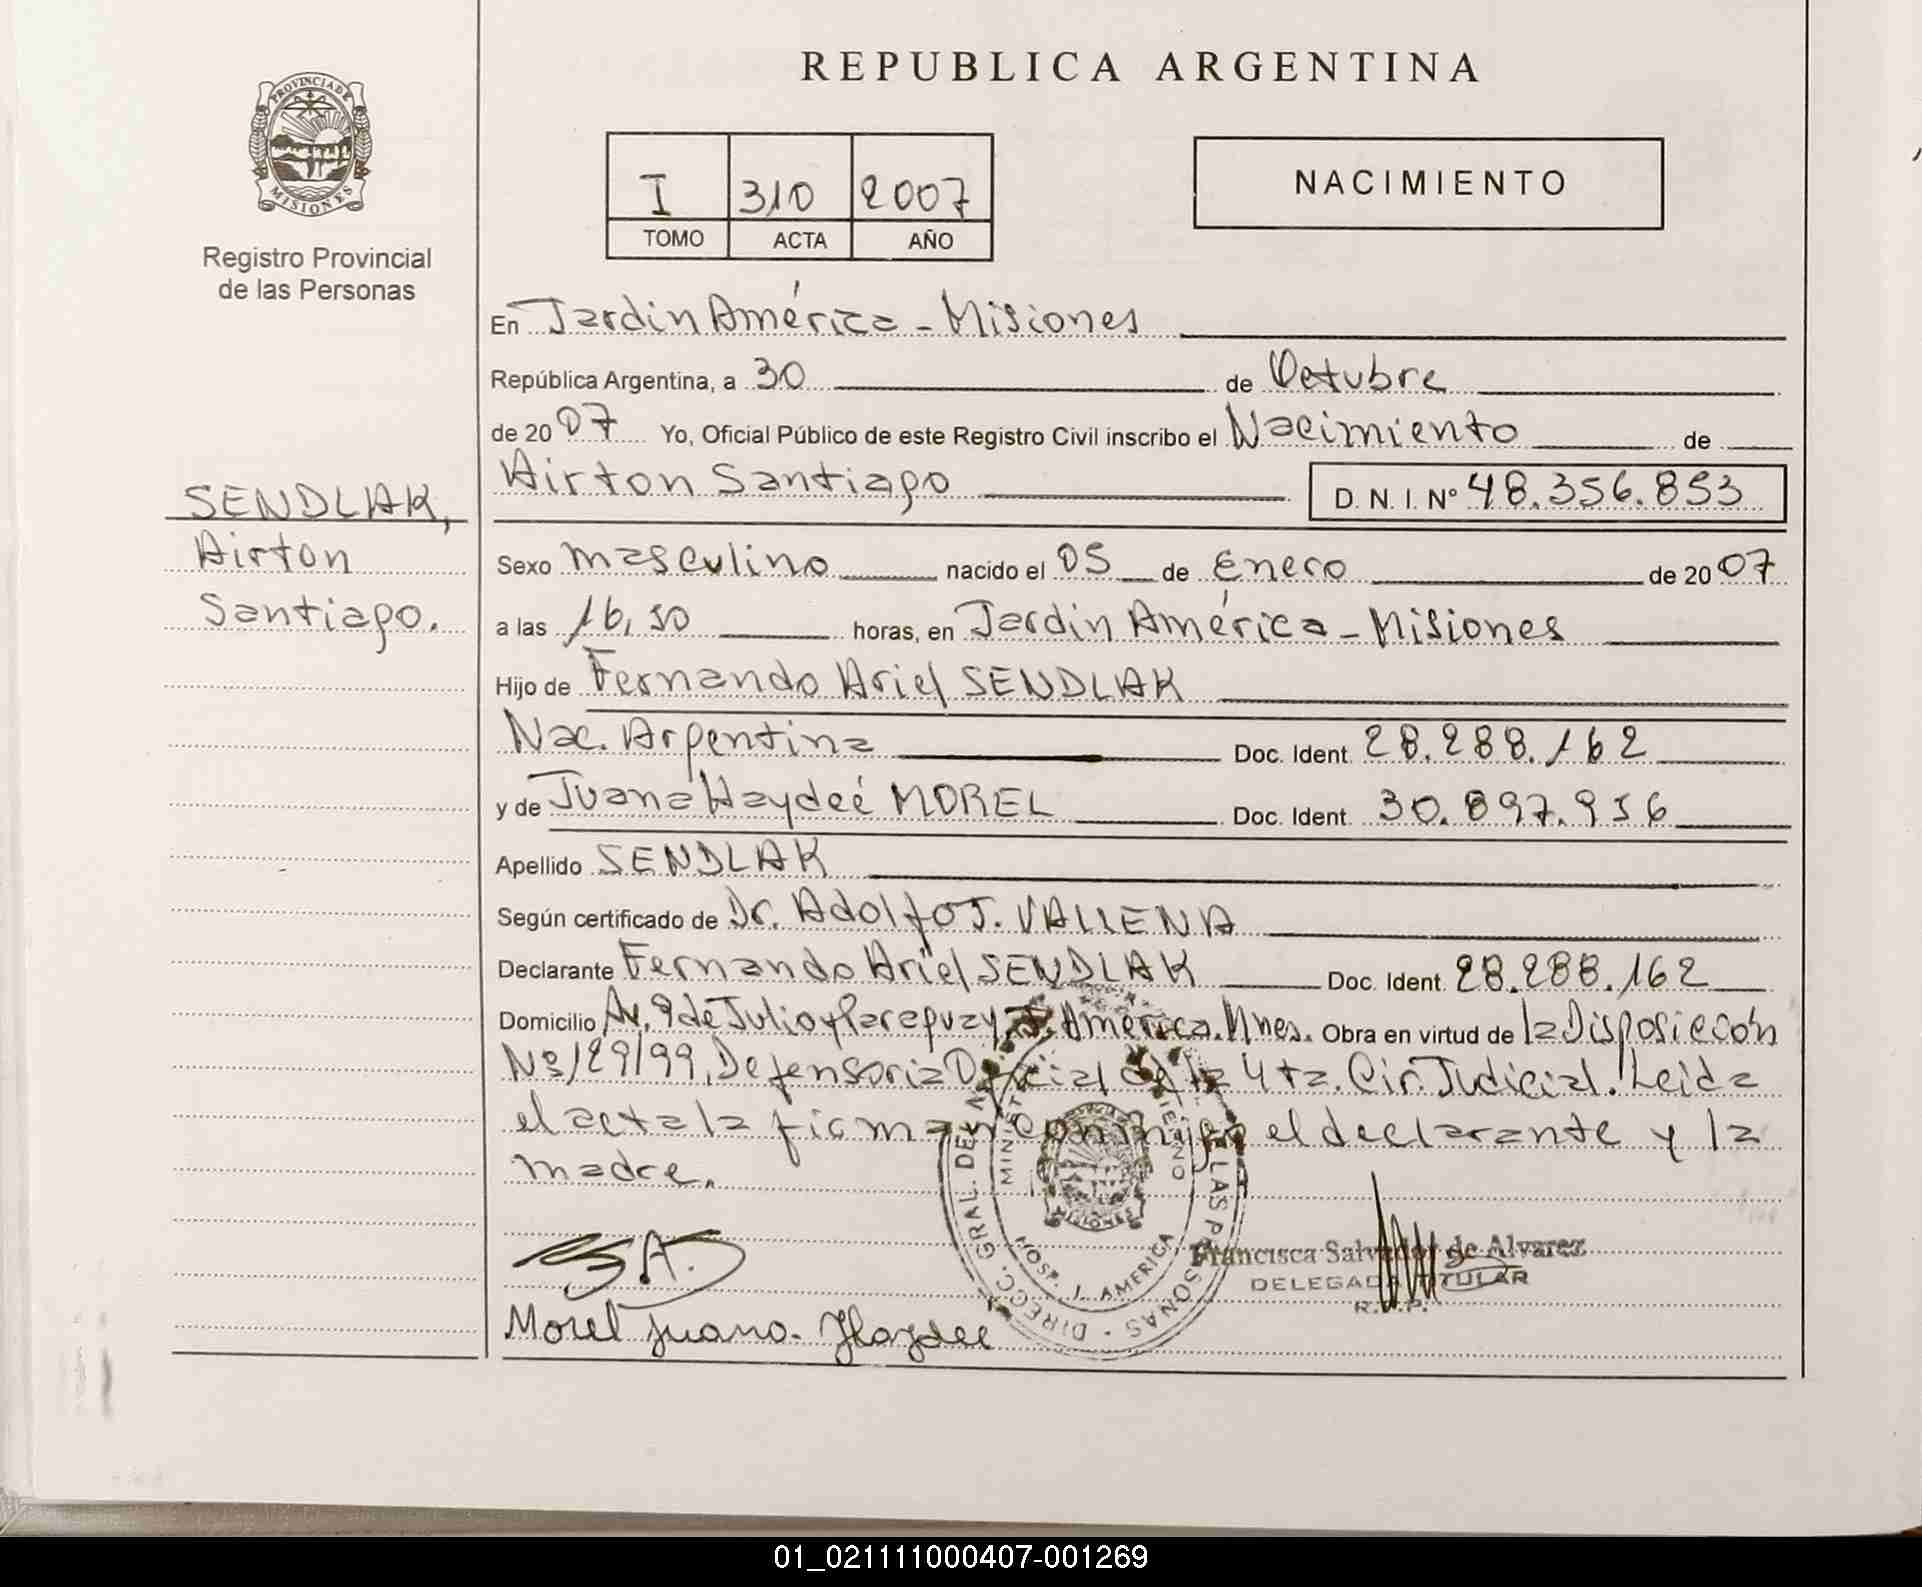 REPUBLICA ARGENTINA
PROVINCIA DE
MISIONES
Registro Provincial
de las Personas
I 310 2007
TOMO ACTA AÑO
NACIMIENTO
En Jardin América - Misiones
República Argentina, a 30 de Octubre
de 2007 Yo, Oficial Público de este Registro Civil inscribo el Nacimiento de
Airton Santiago D. N. I. Nº 48.356.853
SENDLAK,
Airton
Santiago.
Sexo masculino nacido el 05 de Enero de 2007
a las 16,50 horas, en Jardin América - Misiones
Hijo de Fernando Ariel SENDLAK
Nac. Argentina Doc. Ident. 28.288.162
y de Juana Haydeé MOREL Doc. Ident. 30.897.956
Apellido SENDLAK
Según certificado de Dr. Adolfo J. VALLENA
Declarante Fernando Ariel SENDLAK Doc. Ident. 28.288.162
Domicilio Av. 9 de Julio y Paraguay, J. América. Mnes. Obra en virtud de la Disposición
Nº 129/99, Defensoria Oficial de la 4ta. Cir. Judicial. Leida
el acta la firman conmigo el declarante y la
madre.
DIRECC. GRAL. DE LAS PERSONAS
HOSP. J. AMERICA
MISIONES
Francisca Salvador de Alvarez
DELEGADA TITULAR
R.P.P.
Morel Juana. Haydee
01_021111000407-001269